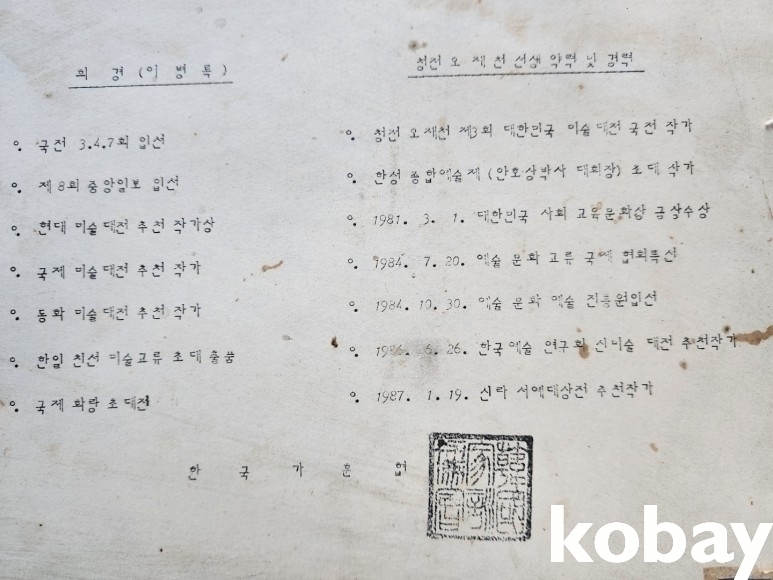 희 경 (이 병 록)
국전 3.4.7회 입선
제 8회 중앙일보 입선
현대 미술대전 추천 작가상
국제 미술대전 추천 작가
동화 미술대전 추천 작가
한일 친선 미술교류 초대 출품
국제 화랑 초대전
청전 오 재천 선생 약력 및 경력
청전 오재천 제3회 대한민국 미술대전 국전 작가
한성 종합예술제 (안호상박사 대회장) 초대 작가
1981. 3. 1. 대한민국 사회 교육문화상 금상수상
1984. 7. 20. 예술 문화 교류 국제 협회특선
1984. 10. 30. 예술 문화 예술 진흥원입선
6. 26. 한국예술 연구회 신미술 대전 추천작가
1987. 1. 19. 신라 서예대상전 추천작가
한 국 가 훈 협
kobay